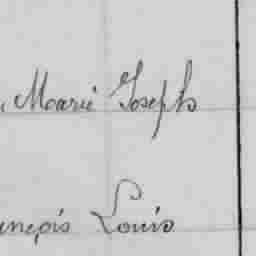 , Marié Joseph
ançois Louis